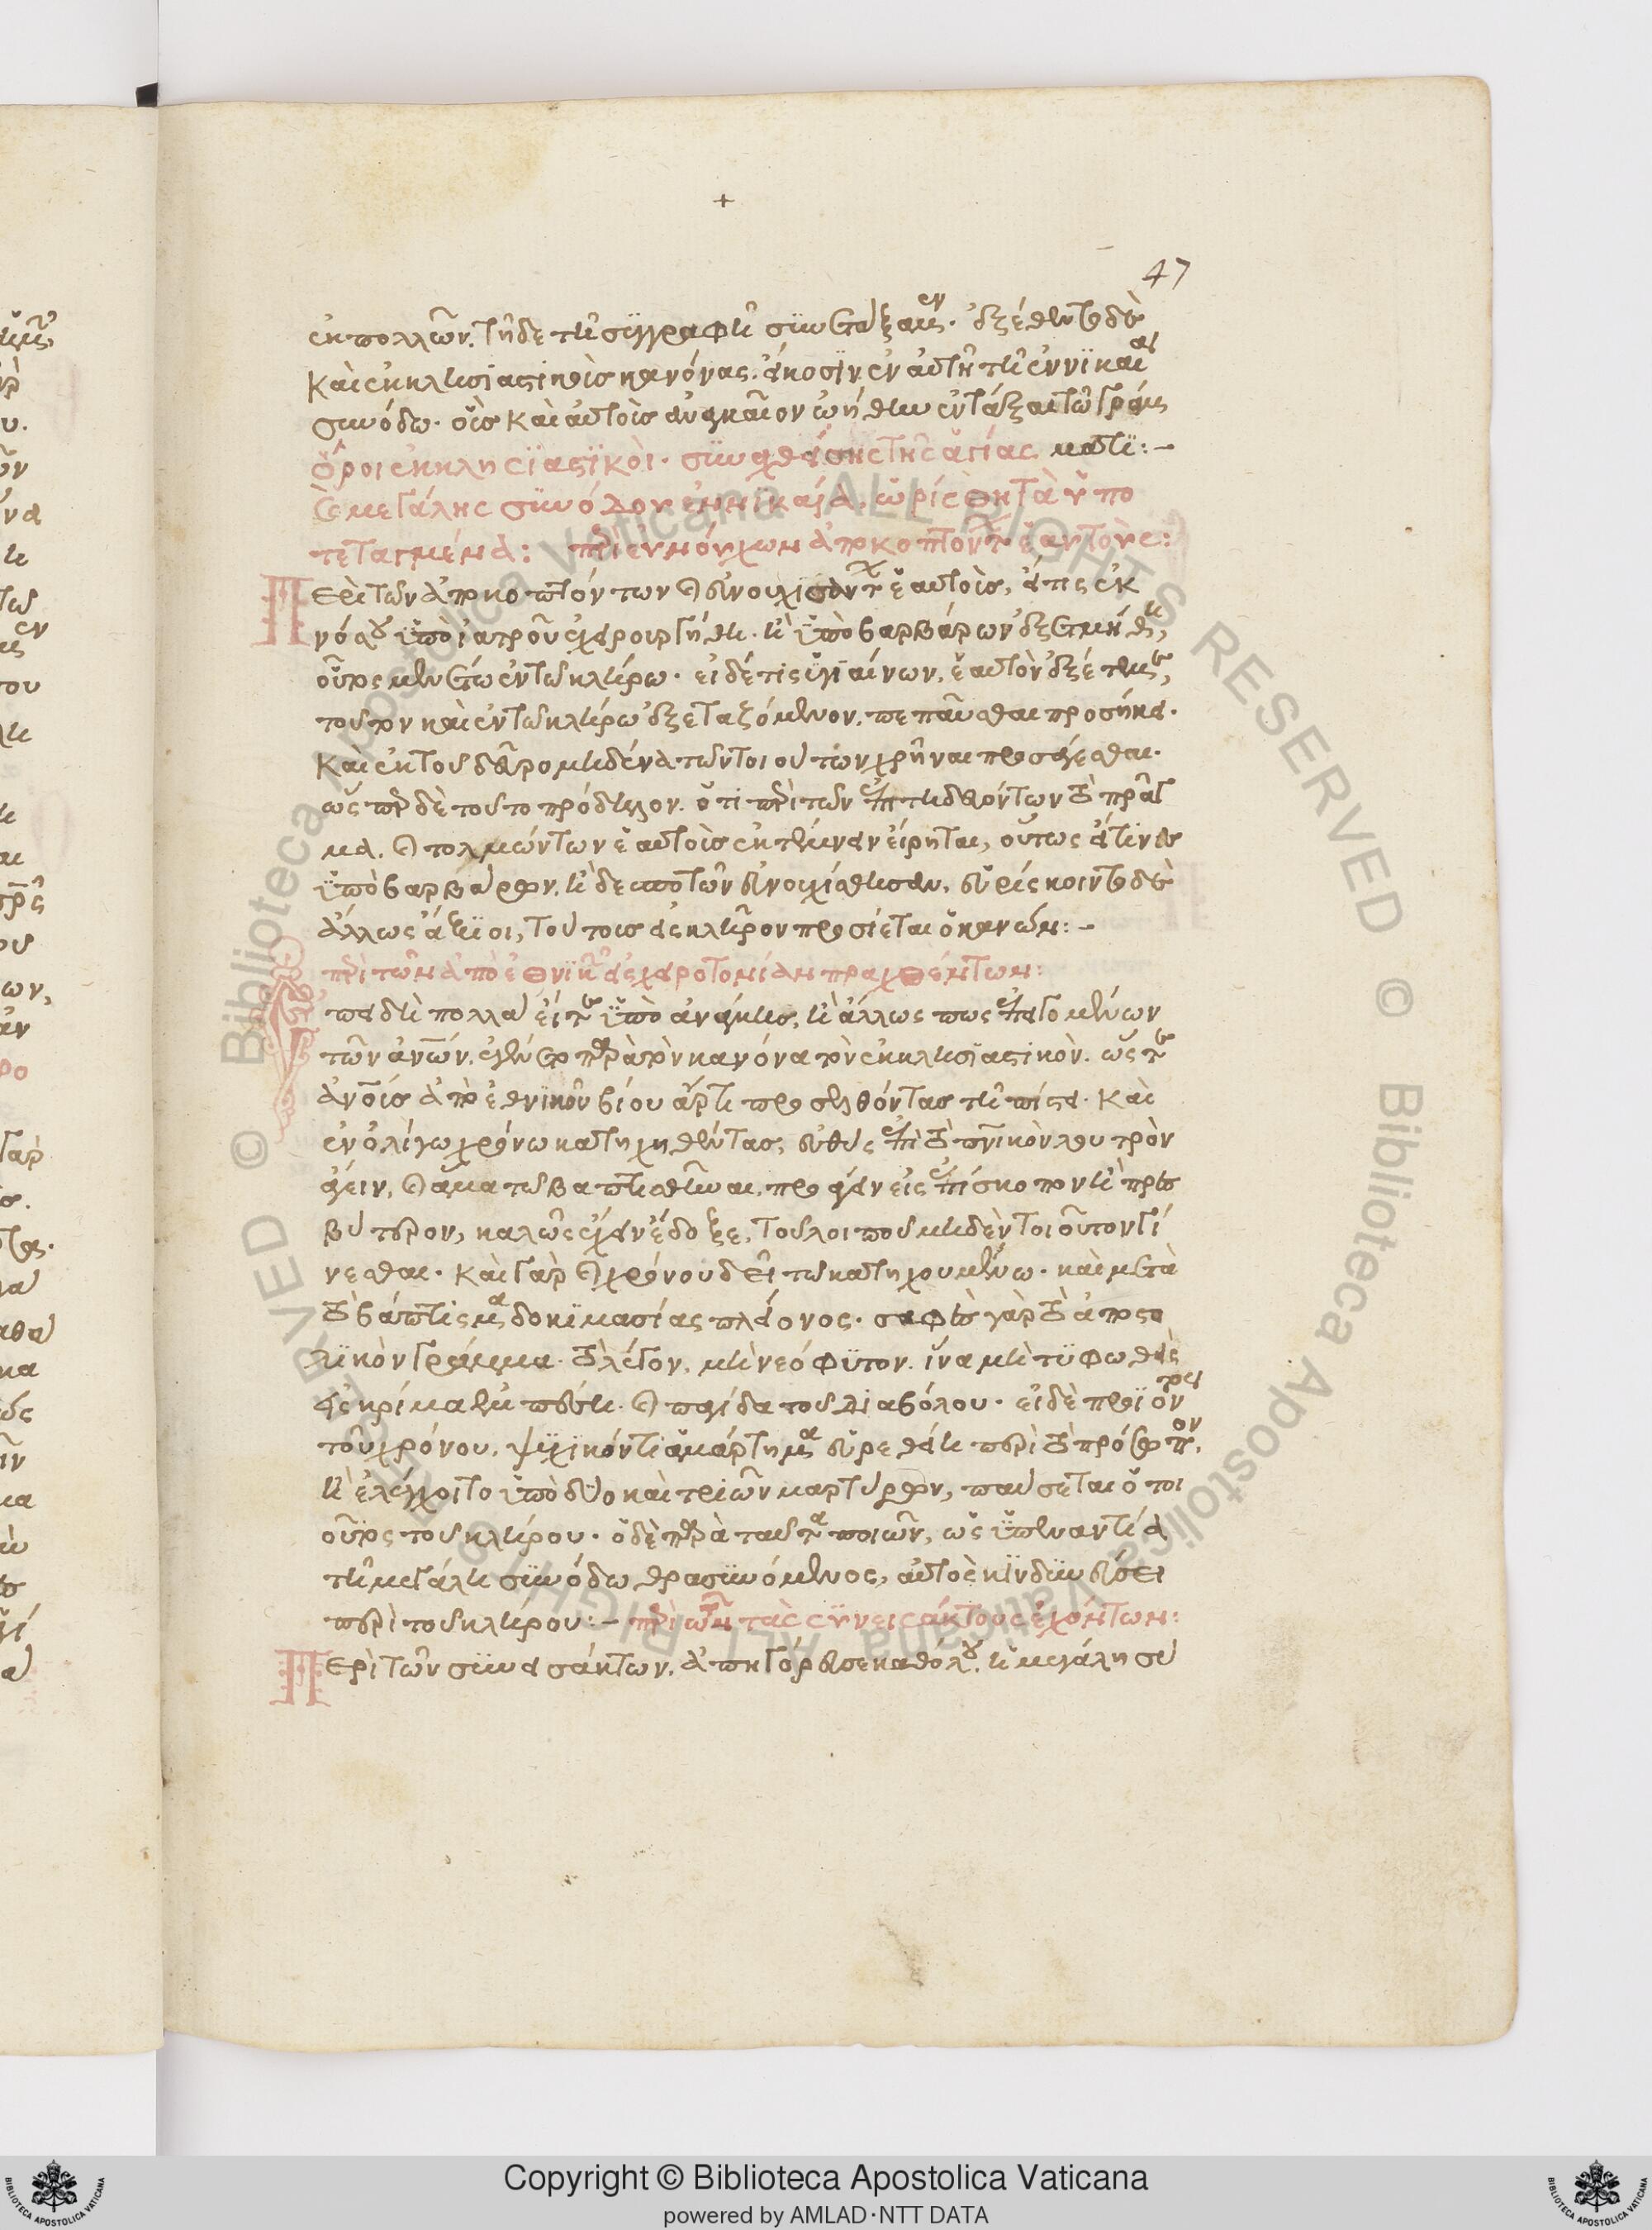 +
47
ἐκ πολλῶν. τῆδε τῆ συγγραφῆ συνετάξαμεν. ἐξέθεντο δὲ
καὶ ἐκκλησιαστικοὺς κανόνας εἴκοσιν ἐν αὐτῆ τῆ ἐν νικαία
συνόδω. οὓς καὶ αὐτοὺς ἀναγκαῖον ὠήθην ἐντάξαι τῶ γράμ
ὅροι ἐκκλησϊαστϊκοὶ. τῆς ἁγίας ματϊ:-
καὶ μεγάλης συνόδου ἐν νικαία, ὡρίσθη τὰ ὑπο
τεταγμένα: περὶ εὐνούχων ἀποκοπτόντων ἑαυτοὺς:
Περὶ τῶν ἀποκοπτόντων καὶ εὐνουχισάντων ἑαυτοὺς, εἴ τις ἐκ
νόσου ὑπὸ ἰατροῦ ἐχειρουργήθη. ἢ ὑπὸ βαρβάρων ἐξετμήθη,
οὗτος μενέτω ἐν τῶ κλήρω. εἰ δέ τις ὑγιαίνων, ἑαυτὸν ἐξέτεμε,
τοῦτον καὶ ἐν τῶ κλήρω ἐξεταζόμενον. πεπαῦσθαι προσήκει.
καὶ ἐκ τοῦ δεῦρο μηδένα τῶν τοιούτων χρῆναι προσάγεσθαι.
ὥσπερ δὲ τοῦτο πρόδηλον. ὅτι περὶ τῶν ἐπιτηδευόντων τὸ πρᾶγ
μα. καὶ τολμώντων ἑαυτοὺς ἐκτέμνειν εἴρηται, οὕτως εἴ τινες
ὑπὸ βαρβάρων. ἢ δεσποτῶν εὐνουχίσθησαν, εὑρίσκοιντο δὲ
ἄλλως ἄξιοι, τοὺς τοιούτους εἰς κλῆρον προσίεται ὁ κανών:-
περὶ τῶν ἀπὸ ἐθνικῶν εἰς χειροτονίαν πραχθέντων:
Ἐπειδὴ πολλὰ εἴτε ὑπὸ ἀνάγκης, ἢ ἄλλως πως ἐπειγομένων
τῶν ἀνων. ἐγένετο παρὰ τὸν κανόνα τὸν ἐκκλησιαστικὸν. ὥστε
ἀνοις ἀπὸ ἐθνικοῦ βίου ἄρτι προσελθόντας τῆ πίστει. καὶ
ἐν ὀλίγω χρόνω κατηχηθέντας, εὐθὺς ἐπὶ τὸ πνικὸν λουτρὸν
ἄγειν, καὶ ἅμα τῶ βαπτισθῆναι, προσάγειν εἰς ἐπίσκοπον ἢ πρεσ
βύτερον, καλῶς ἔχειν ἔδοξε, τοῦ λοιποῦ μηδὲν τοιοῦτον γί
νεσθαι. καὶ γὰρ καὶ χρόνου δεῖ τῶ κατηχουμένω. καὶ μετὰ
τὸ βάπτισμα δοκιμασίας πλείονος. σαφὲς γὰρ τὸ ἀποστο
λϊκὸν γράμμα. τὸ λέγον, μὴ νεόφϋτον. ἵνα μὴ τϋφωθεὶς
εἰς κρίμα ἐμπέση. καὶ παγίδα τοῦ διαβόλου. εἰ δὲ προϊόντος
τοῦ χρόνου. ψυχικόν τι ἁμάρτημα εὑρεθείη περὶ τὸ πρόσωπον,
ἢ ἐλέγχοιτο ὑπὸ δύο καὶ τριῶν μαρτύρων, παυσεται ὁ τοι
οῦτος τοῦ κλήρου. ὁ δὲ παρὰ ταῦτα ποιῶν, ὡς ὑπεναντία
τῆ μεγάλη συνόδω θρασυνόμενος, αὐτὸς κινδυνεύσει
περὶ τοῦ κλήρου:- περὶ τῶν τὰς συνεισάκτους ἐχόντων:
Περὶ τῶν συνεισάκτων. ἀπηγόρευσε καθόλου. ἡ μεγάλη σύ
Copyright © Biblioteca Apostolica Vaticana
powered by AMLAD·NTT DATA